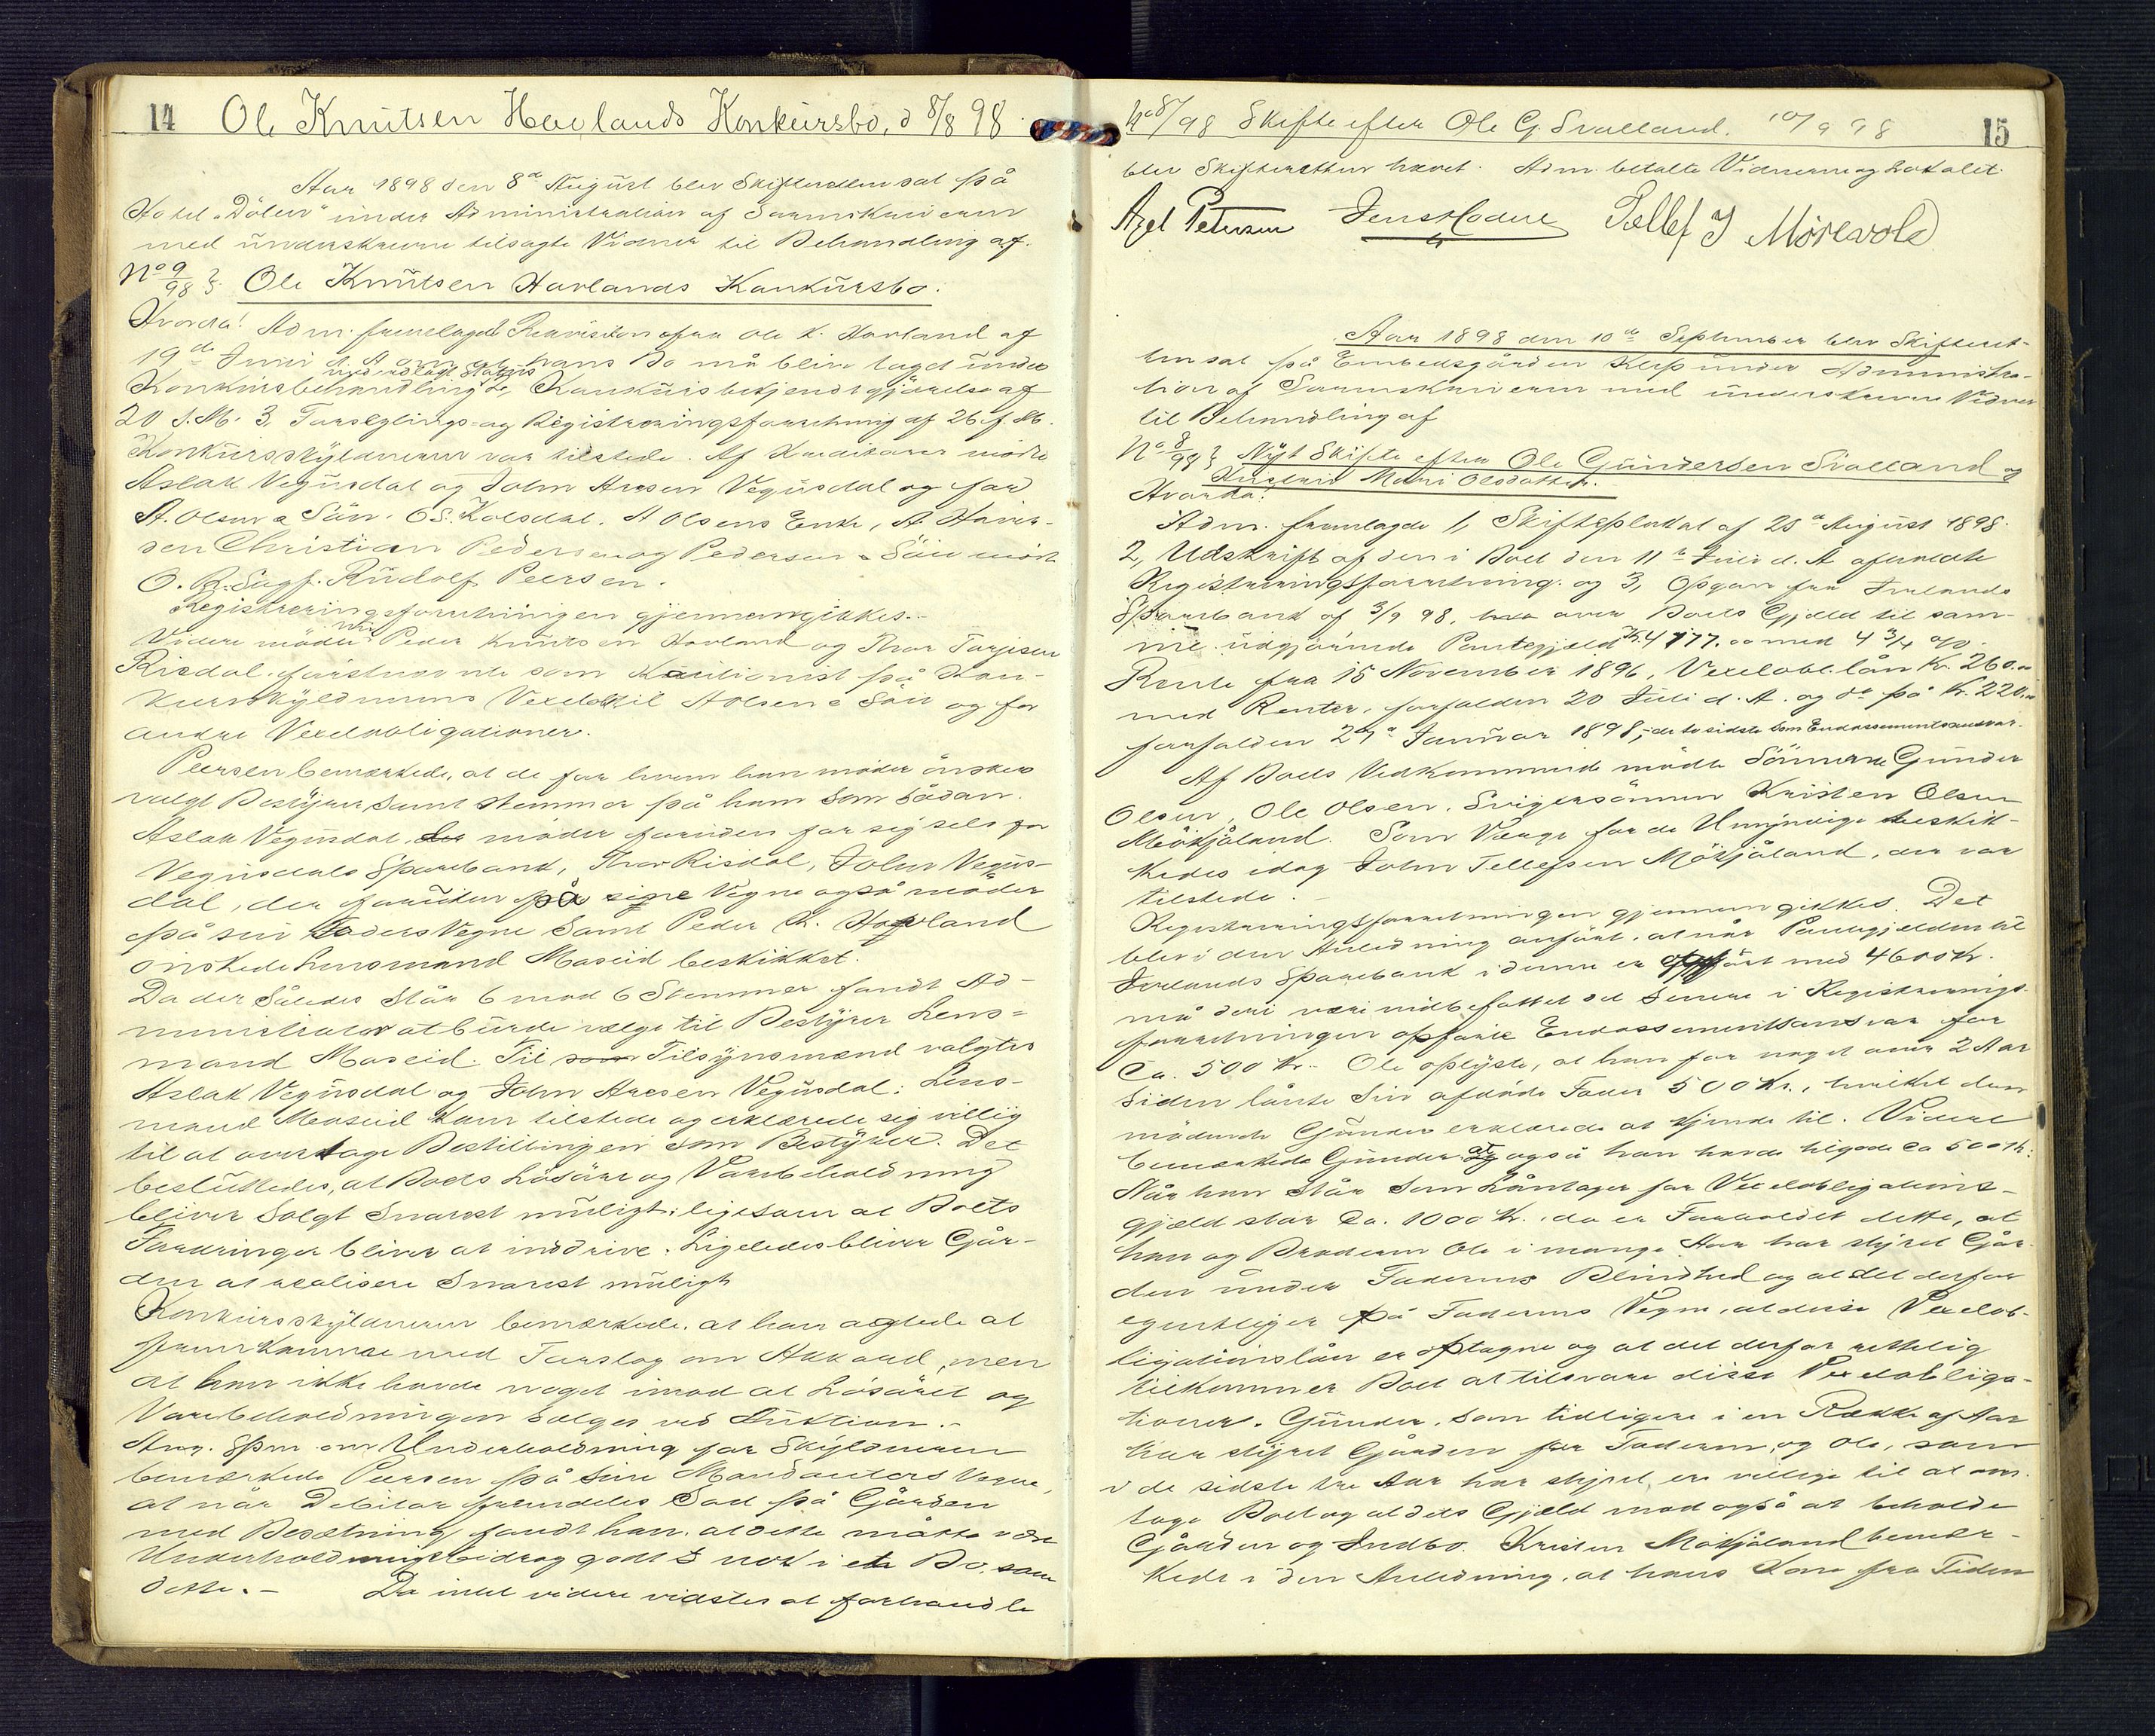 14 Ole Knutsen Hovlands Konkursbo, d 8/8 98
Aar 1898 den 8de August blev Skifteretten sat på
Hotel "Dölen" under Administration af Sorenskriveren
med underskrevne tilsagte Vidner til Behandling af
No 9/98 Ole Knutsen Hovlands Konkursbo.
Hvorda! Adm. fremlagde Rekvisition fra Ole K. Hovland af
19de Juni d. A om at hans Bo må blive taget under
Konkursbehandling med vedlagt Status 2, Konkursbekjendtgjörelse af
20 s. M. 3, Forseglings- og Registreringsforretning af 26 f. M.
Konkursskyldneren var tilstede. Af Kreditorer mödte
Aslak Vegusdal og John Aresen Vegusdal og for
A. Olsen & Sön. O S. Kolsdal. A Olsens Enke, A.
sen Christian Pedersen og Pedersen & Sön mödte
O. R. Sagf. Rudolf Peersen.
Registreringsforretningen gjennemgikkes.
Videre möder Peder Knutsen Hovland og Thor Torjesen
Risdal, förstnævnte som Kautionist på Kon-
kursskyldnerens Vexeler til A Olsen & Sön og for
andre Vexelobligationer.
Peersen bemærkede, at de for hvem han möder önsker
valgt Bestyrer samt stemmer på ham som sådan.
Aslak Vegusdal, der möder foruden for sig selv for
Vegusdals Sparebank, Thor Risdal, John Vegus-
dal, der foruden på sine Vegne også möder
på sin Faders Vegne samt Peder K. Hovland
önskede Lensmand Moseid beskikket.
Da der således står 6 mod 6 Stemmer fandt Ad-
ministrator at burde vælge til Bestyrer Lens-
mand Moseid. Til som Tilsynsmænd valgtes
Aslak Vegusdal og John Aresen Vegusdal. Lens-
mand Moseid kom tilstede og erklærede sig villig
til at overtage Bestillingen som Bestyrer. Det
besluttedes, at Boets Lösöre og Varebeholdning
bliver solgt snarest muligt, ligesom at Boets
Fordringer bliver at inddrive. Ligeledes bliver Går-
den at realisere snarest muligt
Konkursskyldneren bemærkede, at han agtede at
fremkomme med Forslag om Akkord, men
at han ikke havde noget imod at Lösöret og
Varebeholdningen sælges ved Auktion.
Ang. Spm. om Underholdning for Skyldneren
bemærkede Peersen på sine Mandanters Vegne,
at når Debitor fremdeles sad på Gården
med Besætning fandt han, at dette måtte være
Underholdningsbidrag godt nok i et Bo, som
dette. - Da intet videre vidstes at forhandle
No 8/98 Skifte efter Ole G. Svalland. 10/9 98 15
blev Skifteretten hævet. Adm. betalte Vidnerne og Lokalet.
Axel Petersen Jens Tellef J Mösevold
Aar 1898 den 10de September blev Skifteret-
ten sat på Embedsgården under Administra-
tion af Sorenskriveren med underskrevne Vidner
til Behandling af
No 8/98 Nyt Skifte efter Ole Gundersen Svalland og
Hustru Mari Olsdatter.
Hvorda!
Adm. fremlagde 1, Skifteplakat af 20de August 1898.
2, Udskrift af den i Boet den 11te Juli d. A. afholdte
Registreringsforretning. og 3, Opgave fra Ivelands
Sparebank af 3/9 98, over Boets Gjeld til sam-
me udgjörende Pantegjeld Kr. 4177.00 med 4 3/4 %
Rente fra 15 November 1896, Vexelobl.lån Kr. 260.00
med Renter, forfalden 20 Juli d. A. og do på Kr. 220.00
forfalden 27de Januar 1898, de to sidste som Endossementsansvar.
Af Boets Vedkommende mödte Sönnerne Gunder
Olsen, Ole Olsen, Svigersönnen Kristen Olsen
Mökjåland. Som Værge for de Umyndige beskik-
kedes idag John Tellefsen Mökjåland, der var
tilstede.
Registreringsforretningen gjennemgikkes. Det
blev i den Anledning anfört, at når Pantegjelden til
Ivelands Sparebank i denne er opfört med 4600 Kr.
må deri være indbefattet det senere i Registrerings-
forretningen opförte Endossementsansvar for
Ca. 500 Kr. Ole oplyste, at han for noget over 2 Aar
siden lånte sin afdöde Fader 500 Kr., hvilket den
mödende Gunder erklærede at kjende til. Videre
bemærkede Gunder at også han havde tilgode ca 500 Kr.
Når han står som Låntager for Vexelobligations-
gjæld stor Ca. 1000 Kr., da er Forholdet dette, at
han og Broderen Ole i mange Aar har styret Går-
den under Faderens Blindhed og at det derfor
egentlig er på Faderens Vegne, at disse Vexelob-
ligationslån er optagne og at det derfor rettelig
tilkommer Boet at tilsvare disse Vexelobliga-
tioner. Gunder, som tidligere i en Række af Aar
har styret Gården for Faderen, og Ole, som
i de sidste tre Aar har styret, er villige til at over-
tage Boet og al dets Gjeld mod også at beholde
Gården og Indbo. Kristen Mökjåland bemær-
kede i den Anledning, at hans Kone fra Tiden